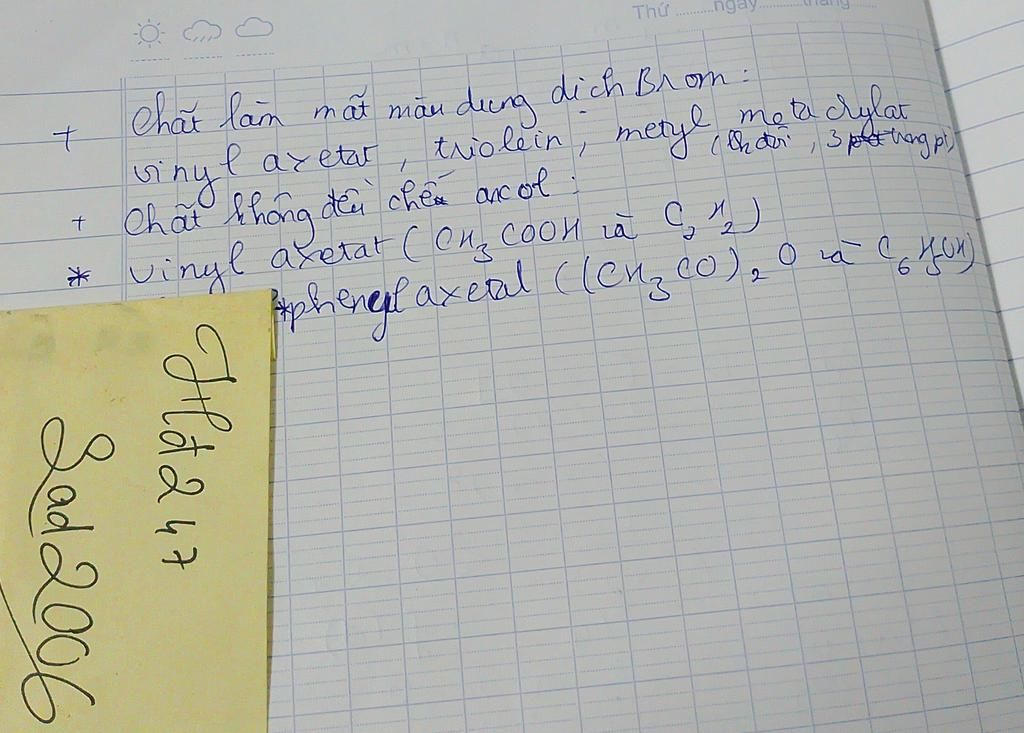 Thứ ........ngày ........tháng ........
+ Chất làm mất màu dung dịch Brom:
vinyl axetat, triolein, metyl metacrylat
(lk đôi, 3 trong pi)
+ Chất không điều chế ancol:
* vinyl axetat (CH3COOH và C2H2)
*phenyl axetal ((CH3CO)2O và C6H5OH)
Hđ247
Sad2006